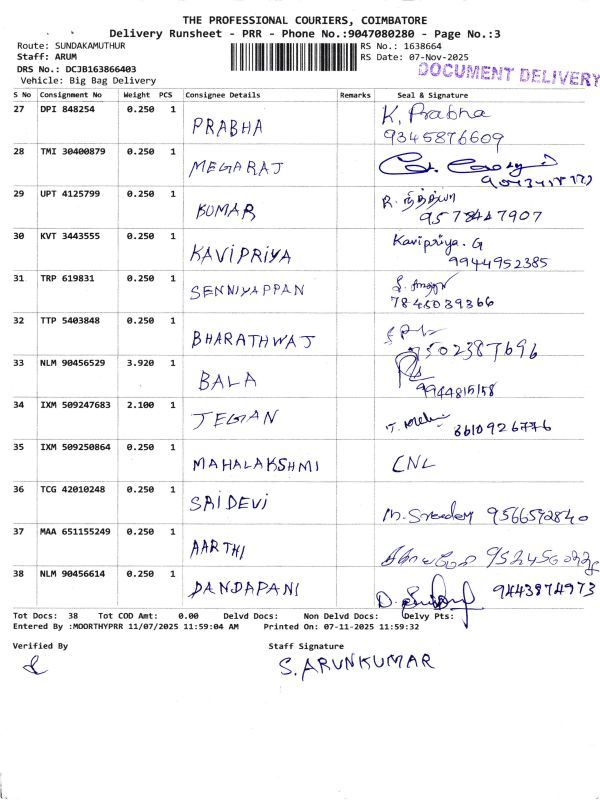 THE PROFESSIONAL COURIERS, COIMBATORE
Delivery Runsheet - PRR - Phone No.:9047080280 - Page No.:3
Route: SUNDAKAMUTHUR RS No.: 1638664
Staff: ARUM RS Date: 07-Nov-2025
DRS No.: DCJB163866403 DOCUMENT DELIVERY
Vehicle: Big Bag Delivery
S No Consignment No Weight PCS Consignee Details Remarks Seal & Signature
27 DPI 848254 0.250 1 PRABHA K. Prabha
9345876609
28 TMI 30400879 0.250 1 MEGARAJ
29 UPT 4125799 0.250 1 KUMAR R. நித்தியா
9578447907
30 KVT 3443555 0.250 1 KAVIPRIYA Kavipriya. G
9944952385
31 TRP 619831 0.250 1 SENNIYAPPAN
7845039366
32 TTP 5403848 0.250 1 BHARATHWAJ
7502387696
33 NLM 90456529 3.920 1 BALA
9944815158
34 IXM 509247683 2.100 1 JEGAN 8610926776
35 IXM 509250864 0.250 1 MAHALAKSHMI CNL
36 TCG 42010248 0.250 1 SRIDEVI M. Sreedevi 9566592840
37 MAA 651155249 0.250 1 AARTHI
38 NLM 90456614 0.250 1 DANDAPANI D. 9443974973
Tot Docs: 38 Tot COD Amt: 0.00 Delvd Docs: Non Delvd Docs: Delvy Pts:
Entered By :MOORTHYPRR 11/07/2025 11:59:04 AM Printed On: 07-11-2025 11:59:32
Verified By Staff Signature
S. ARUNKUMAR